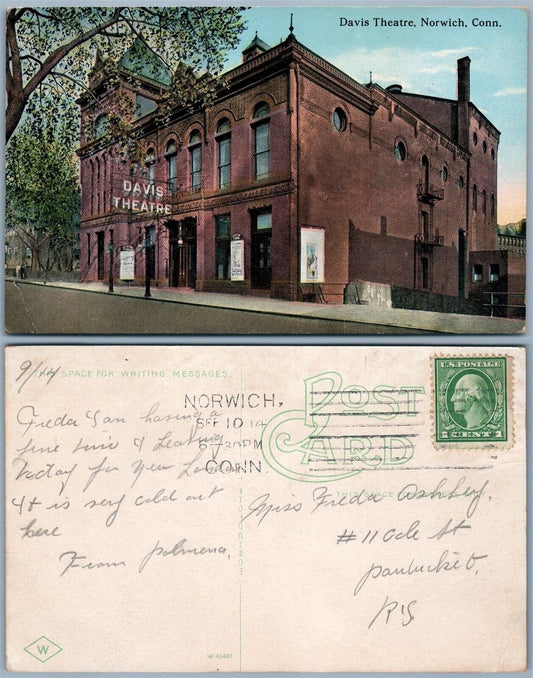 Davis Theatre, Norwich, Conn.
DAVIS
THEATRE
9/14
THIS SPACE FOR WRITING MESSAGES.
Freda I am having a
fine time & Leaving
today for New London
It is very cold out
here
From Palmena,
NORWICH,
SEP 10 14
30PM
CONN.
POST
CARD
U.S. POSTAGE
1 CENTS 1
THIS SPACE FOR
Miss Freda Ashby.
#11 Ode St
Pautucket,
RI
W
W-40487